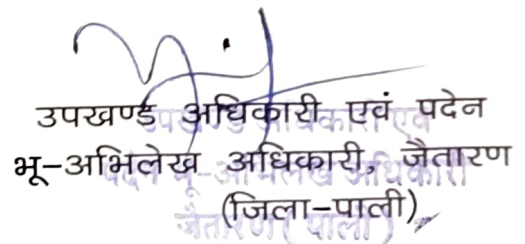 उपखण्ड अधिकारी एवं पदेन
भू-अभिलेख अधिकारी, जैतारण
(जिला-पाली)
उपखण्ड अधिकारी एवं
पदेन भू-अभिलेख अधिकारी
जैतारण ( पाली )